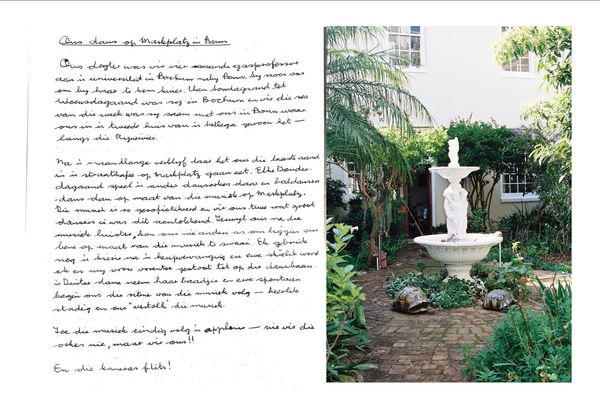 Ons dans op Markplatz in Bonn
Ons dogter was vir vier maande gasprofessor
aan 'n universiteit in Bochum naby Bonn. Sy nooi ons
om by haar te kom kuier. Van Sondagaand tot
Woensdagaand was sy in Bochum en vir die res
van die week was sy saam met ons in Bonn waar
ons in 'n tweede huis van 'n kollega gewoon het —
langs die Rynrivier.
Na 'n maandlange verblyf daar het ons die laaste aand
in 'n straatkafee op Markplatz gaan eet. Elke Donder-
dagaand speel 'n ander dansorkes daar en baldansers
dans dan op maat van die musiek op Markplatz.
Die musiek is so gesofistikeerd en vir ons twee wat groot
dansers is was dit aanloklend. Terwyl ons na die
musiek luister, kon ons nie anders as om liggies ons
bene op maat van die musiek te swaai. Ek gebruik
nog 'n kierie na 'n heupvervanging en ewe skielik word
ek en my vrou vorentoe gestoot tot op die dansbaan.
'n Duitse dame neem haar baadjie en ewe spontaan
begin ons die ritme van die musiek volg — heeltyd
stadig en ons "vertolk" die musiek.
Toe die musiek eindig volg 'n applous — nie vir die
orkes nie, maar vir ons!!
En die kameras flits!